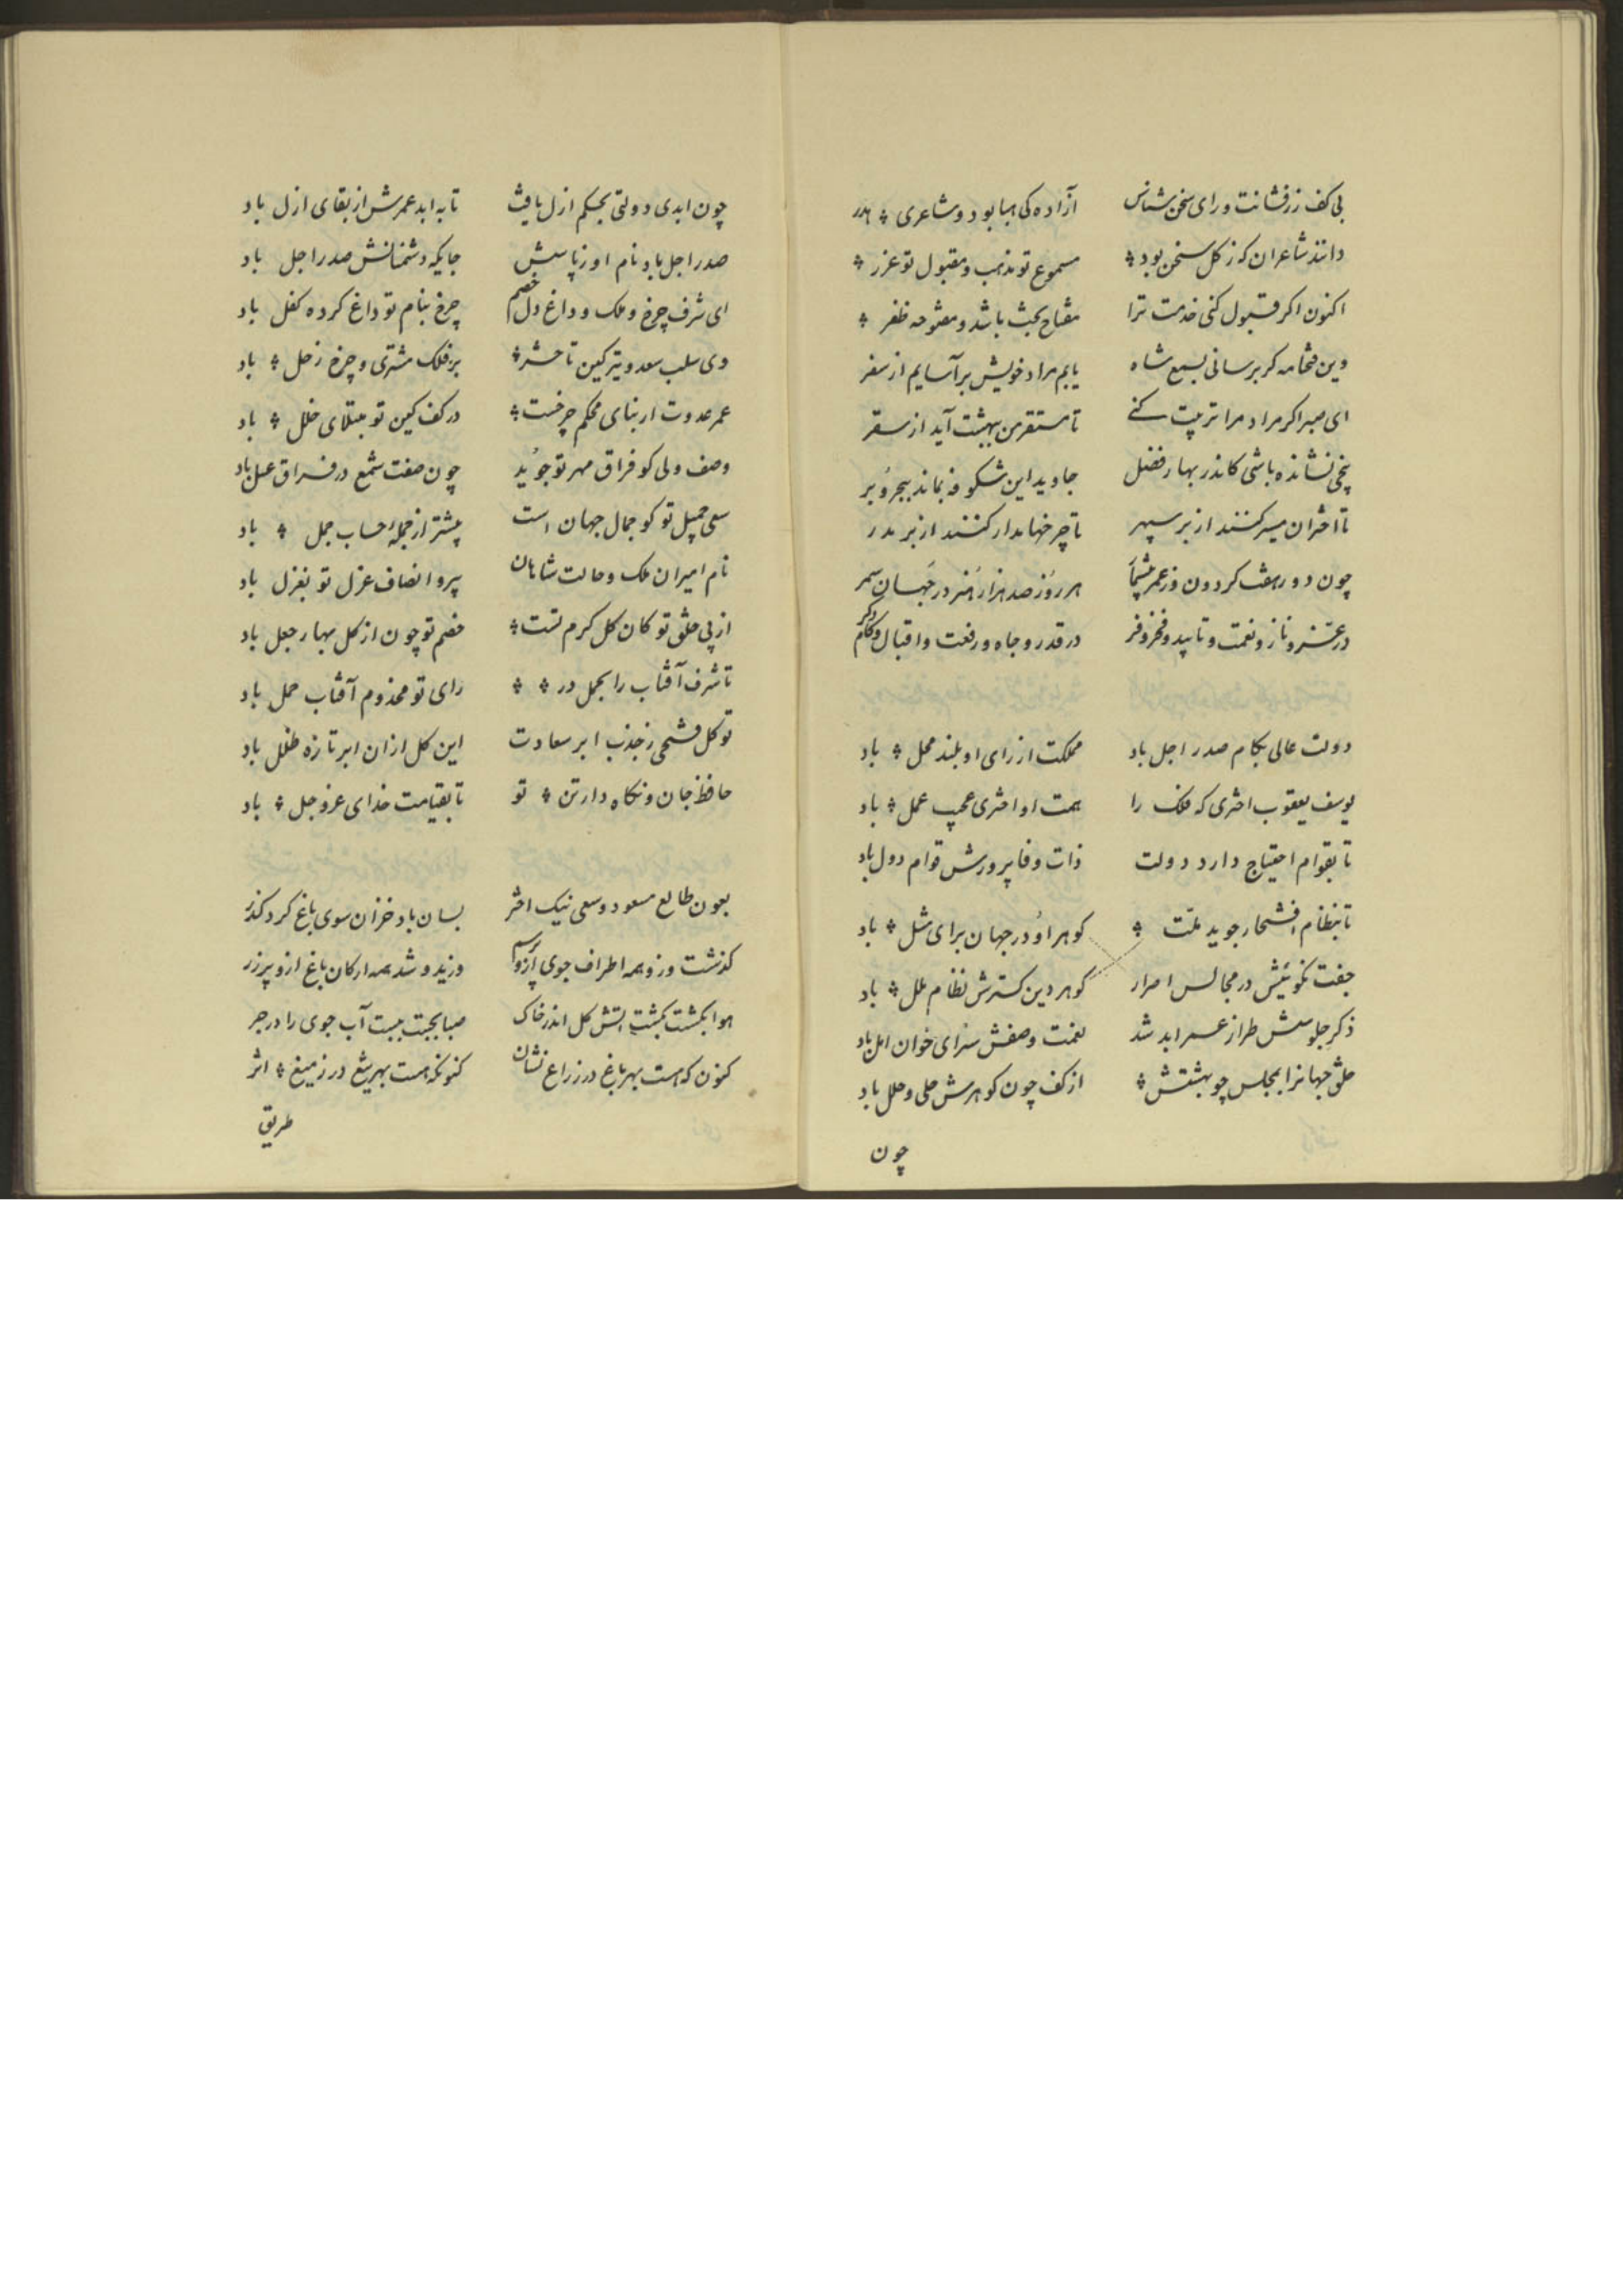 بی کف زرفشانت ورای سخن شناس آزاده کی هبا بود و شاعری هدر
دانند شاعران که ز کل سخن بود مسموع تو مذهب و مقبول تو غرر
اکنون اکر قبول کنی خدمت ترا مفتاح بخت باشد و مفتوحه ظفر
وین فتحنامه کر برسانی بسمع شاه یابم مراد خویش برآسایم از سفر
ای صبر اکر مراد مرا تربیت کنے تا مستقر من ببهشت آید از سقر
بیخی نشانده باشی کاندر بهار فضل جاوید این شکوفه بماند ببحر و بر
تا اختران مسیر کنند از بر سپهر تا چرخها مدار کنند از بر مدر
چون دور هفت کردون وز عمر هر روز صد هزار هنر در جهان سمر
در عز و ناز و نعمت و تایید و فخر و فر در قدر و جاه و رفعت و اقبال و کام
دولت عالی بکام صدر اجل باد مملکت از رای او بلند محل باد
یوسف یعقوب اختری که فلک را همت او اختری عجب عمل باد
تا بقوام احتیاج دارد دولت ذات وفا پرورش قوام دول باد
تا بنظام افتخار جوید ملّت کوهر او در جهان برای مثل باد
جفت نکوئیش در مجالس احرار کوهر دین کسترش نظام ملل باد
ذکر جلوسش طراز عمر ابد شد نعمت وصفش سزای خوان امل باد
خلق جهانرا بمجلس چو بهشتش از کف چون کوهرش حلی و حلل باد
چون
چون ابدی دولتی بحکم ازل یافت تا به ابد عمرش از بقای ازل باد
صدر اجل باد نام او ز جایکه دشمنانش صدر اجل باد
ای شرف چرخ و ملک و داغ دل خصم چرخ بنام تو داغ کرده کفل باد
وی سلب سعد و تیر کین تا حشر بر فلک مشتری و چرخ زحل باد
عمر عدوت ار بنای محکم چرخست در کف کین تو مبتلای خلل باد
وصف ولی کو فراق مهر تو جوید چون صفت شمع در فراق عسل باد
سعی جمیل تو کو جمال جهان است بیشتر از جملهٔ حساب جمل باد
نام امیران ملک و حالت شاهان پیرو انصاف عزل تو بغزل باد
از پی خلق تو کان کل کرم تست خصم تو چون از کل بهار جعل باد
تا شرف آفتاب را بحمل در رای تو مخدوم آفتاب حمل باد
تو کل فتحی ز جذب ابر سعادت این کل از ان ابر تازه طلل باد
حافظ جان و نکاه دار تن تو تا بقیامت خدای عز و جل باد
بعون طالع مسعود و سعی نیک اختر بسان باد خزان سوی باغ کرد کذر
کذشت وز و همه اطراف جوی وزید و شد همه ارکان باغ ازو پر زر
هوا بکشت بکشت اتش کل اندر خاک صبا ببست آب جوی را در جر
کنون که هست بهر باغ در ز زاغ نشان کنونکه هست بهر تیغ در ز میغ اثر
طریق